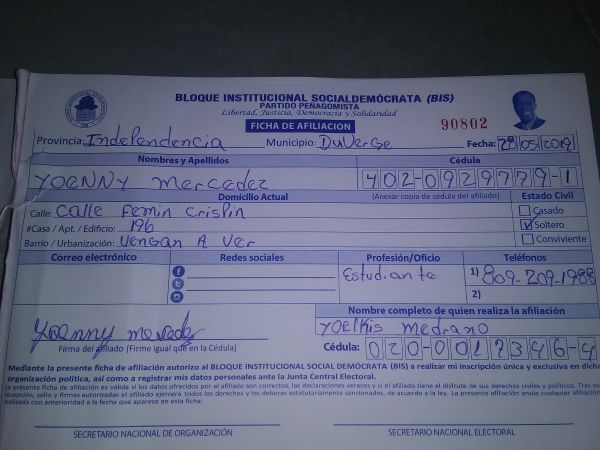 BLOQUE INSTITUCIONAL SOCIALDEMÓCRATA (BIS)
PARTIDO PEÑAGOMISTA
Libertad, Justicia, Democracia y Solidaridad
FICHA DE AFILIACION
90802
Provincia: Independencia Municipio: DuVerge Fecha: 28/05/2019
Nombres y Apellidos Cédula
YOENNY mercedez 402-0929779-1
Domicilio Actual (Anexar copia de cédula del afiliado) Estado Civil
Calle: Calle Femin Crispin Casado
#Casa / Apt. / Edificio: 196 Soltero
Barrio / Urbanización: Vengan A Ver Conviviente
Correo electrónico Redes sociales Profesión/Oficio Teléfonos
Estudiante 1) 809-209-1988
2)
Nombre completo de quien realiza la afiliación
Yoenny mercedez YOElkis medrano
Firma del afiliado (Firme igual que en la Cédula) Cédula: 020-0017346-4
Mediante la presente ficha de afiliación autorizo al BLOQUE INSTITUCIONAL SOCIAL DEMÓCRATA (BIS) a realizar mi inscripción única y exclusiva en dicha
organización política, así como a registrar mis datos personales ante la Junta Central Electoral.
La presente ficha de afiliación es válida si los datos ofrecidos por el afiliado son correctos, las declaraciones veraces y si el afiliado tiene el disfrute de sus derechos civiles y políticos. Tres su
recepción, sello y firmas autorizadas el afiliado ejercerá todos los derechos y los deberes estatutariamente sancionados, de acuerdo a la ley. La presente afiliación anula cualquier afiliación
realizada con anterioridad a la fecha que aparece en esta ficha.
SECRETARIO NACIONAL DE ORGANIZACIÓN SECRETARIO NACIONAL ELECTORAL